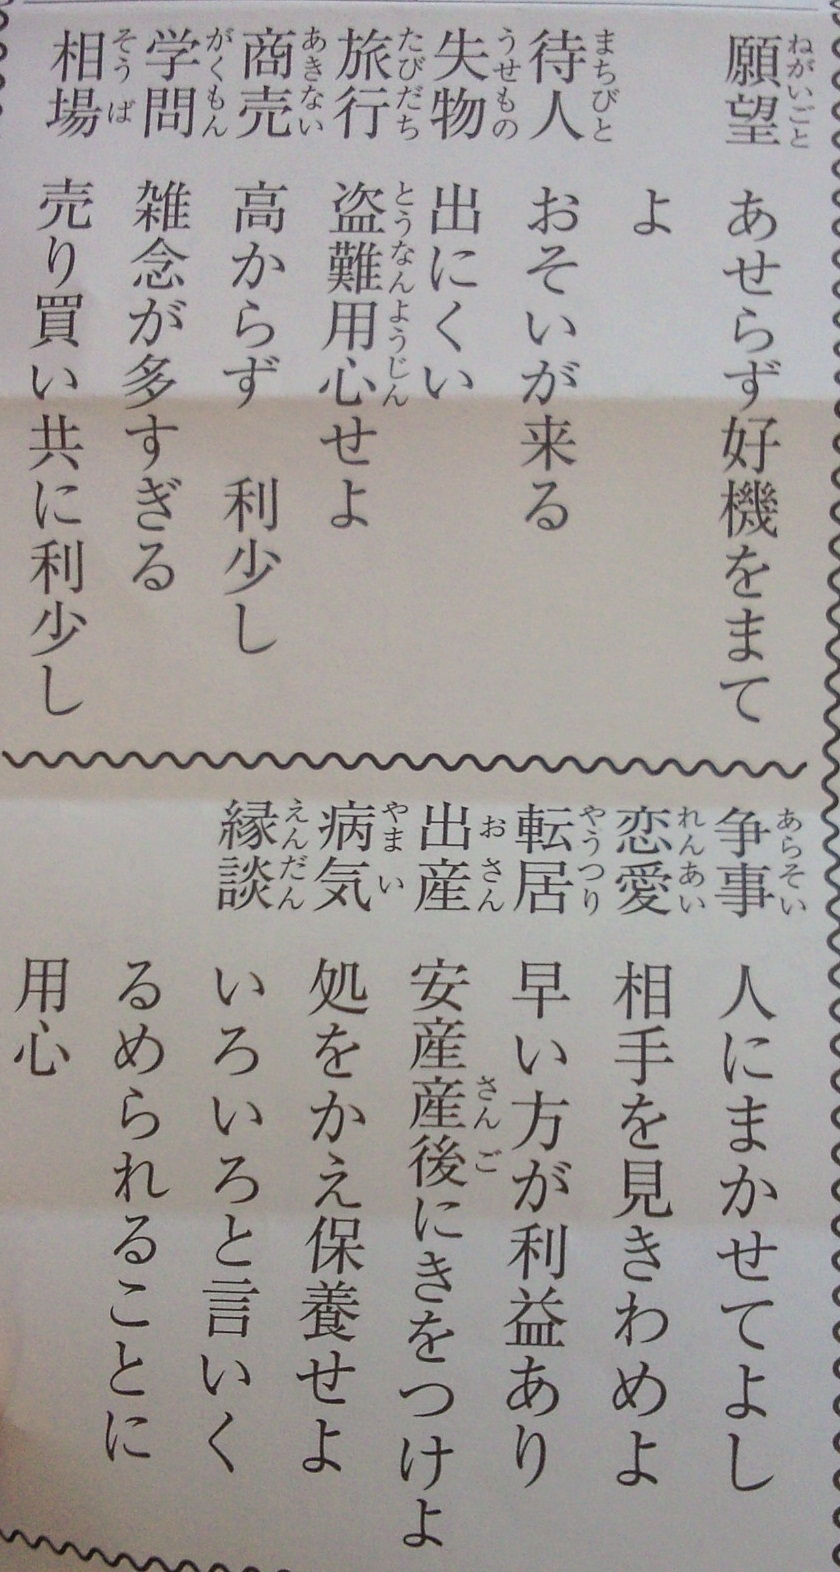 願望 あせらず好機をまて
よ
待人 おそいが来る
失物 出にくい
旅行 盗難用心せよ
商売 高からず 利少し
学問 雑念が多すぎる
相場 売り買い共に利少し
争事 人にまかせてよし
恋愛 相手を見きわめよ
転居 早い方が利益あり
出産 安産産後にきをつけよ
病気 処をかえ保養せよ
縁談 いろいろと言いく
るめられることに
用心
ねがいごと
まちびと
うせもの
たびだち
とうなんようじん
あきない
がくもん
そうば
あらそい
れんあい
やうつり
おさん
さんご
やまい
えんだん